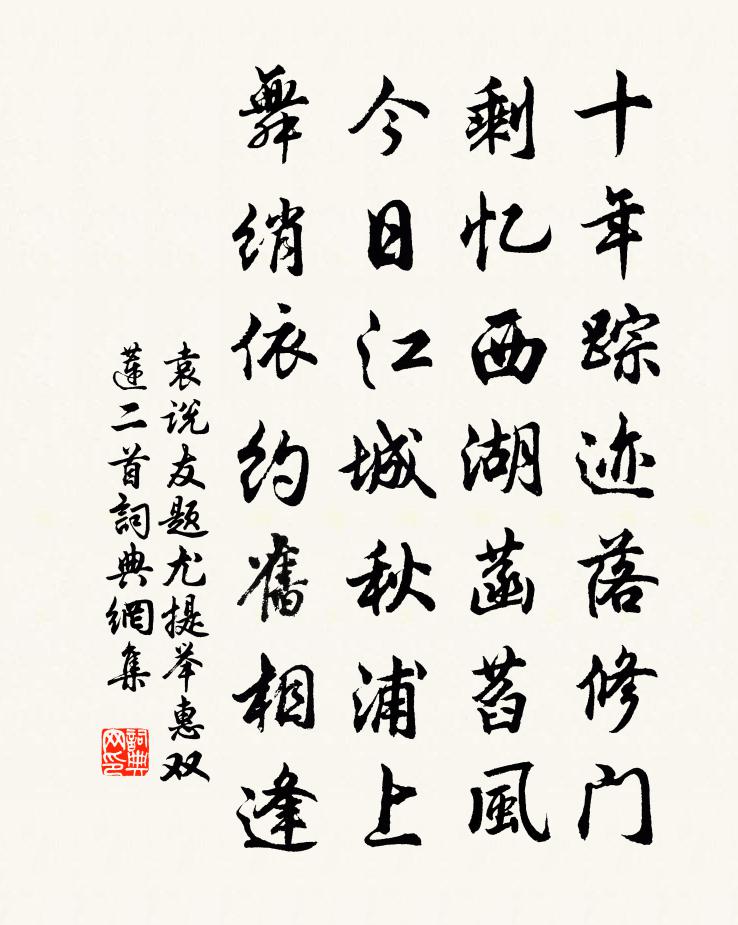 十年踪迹落修门
剩忆西湖菡萏風
今日江城秋浦上
舞绡依约舊相逢
袁说友题尤提举惠双
莲二首詞典網集
詞典
网印